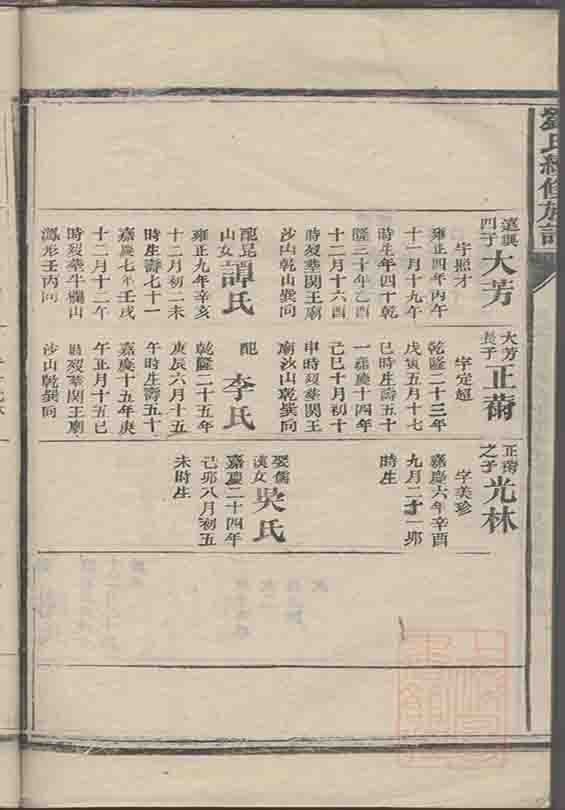 劉氏續修族譜
遠與
四子
大芳
字照才
雍正四年丙午
十一月十九午
時生年四十乾
隆三十年乙酉
十二月十六酉
時歿葬関王廟
沙山乾山巽向
配尼
山女
譚氏
雍正九年辛亥
十二月初二未
時生壽七十一
嘉慶七年壬戌
十二月十二午
時歿葬牛欄山
鳳形壬丙向
大芳
長子
正
字定超
乾隆二十三年
戊寅五月十七
巳時生壽五十
一嘉慶十四年
己巳十月初十
申時歿葬関王
廟沙山乾巽向
配
李氏
乾隆二十五年
庚辰六月十五
午時生壽五十
嘉慶十五年庚
午正月十五巳
時歿葬関王廟
沙山乾巽向
正
之子
光林
字美珍
嘉慶六年辛酉
九月二十一卯
時生
娶儒
漢女
吳氏
嘉慶二十四年
己卯八月初五
未時生